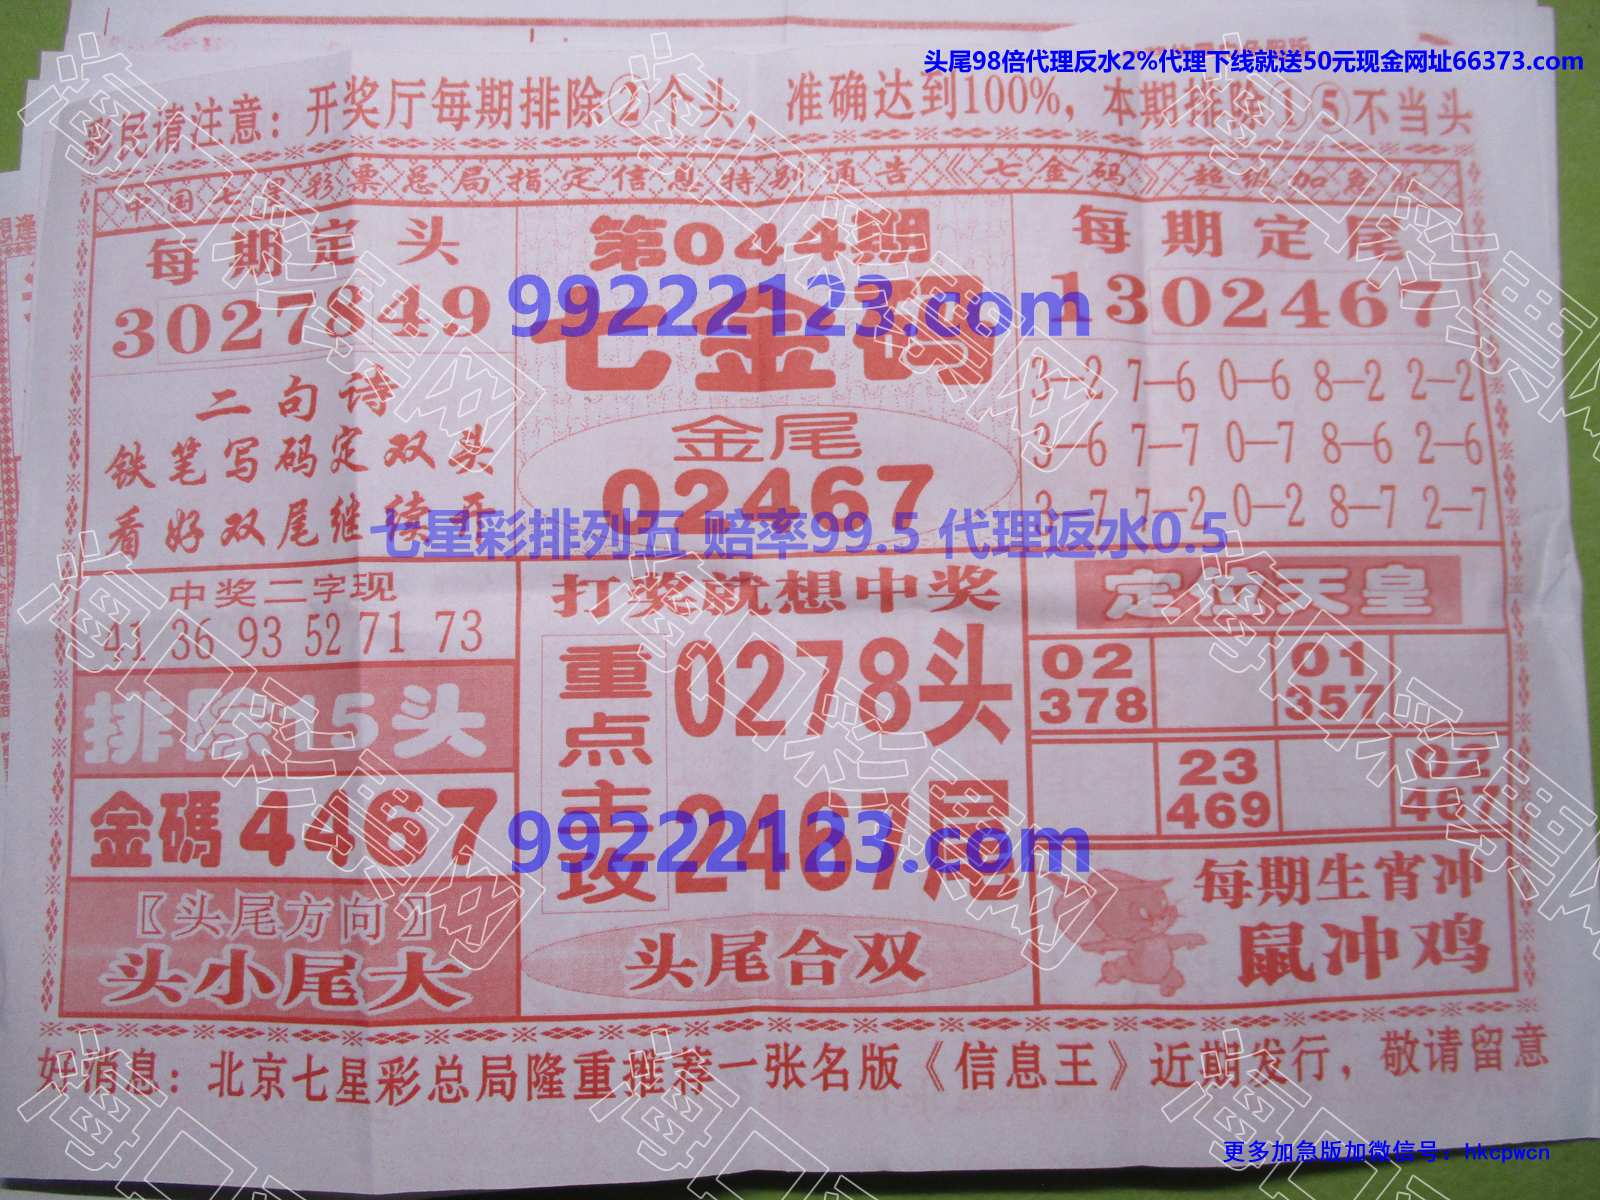 头尾98倍代理反水2%代理下线就送50元现金网址66373.com
彩民请注意：开奖厅每期排除②个头，准确达到100%，本期排除①⑤不当头
中国七星彩票总局指定信息特别通告《七金码》超级加急版
每期定头
3027849
二句诗
铁笔写码定双头
看好双尾继续开
第044期
99222123.com
七金码
金尾
02467
每期定尾
1302467
3—2 7—6 0—6 8—2 2—2
3—6 7—7 0—7 8—6 2—6
3—7 7—2 0—2 8—7 2—7
七星彩排列五 赔率99.5 代理返水0.5
中奖二字现
41 36 93 52 71 73
排除15头
金碼4467
〖头尾方向〗
头小尾大
打奖就想中奖
重点主攻
0278头
2467尾
99222123.com
头尾合双
定位天皇
02 01
378 357
23 02
469 467
每期生宵冲
鼠冲鸡
好消息：北京七星彩总局隆重推荐一张名版《信息王》近期发行，敬请留意
更多加急版加微信号：hkcpwcn
海口彩票网